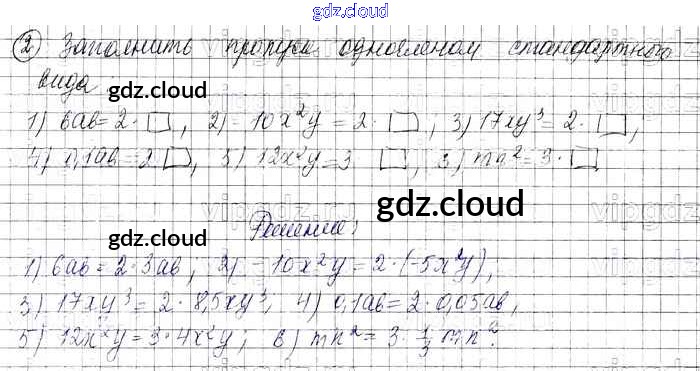 gdz.cloud
② Заполнить пропуск одночленом стандартного
вида:
gdz.cloud
1) 6ab = 2 · □, 2) -10x²y = 2 · □; 3) 17xy³ = 2 · □,
4) 0,1ab = 2 □, 5) 12x²y = 3 □, 6) mn² = 3 · □
gdz.cloud
gdz.cloud
Решение:
1) 6ab = 2 · 3ab; 2) -10x²y = 2 · (-5x²y),
3) 17xy³ = 2 · 8,5xy³, 4) 0,1ab = 2 · 0,05ab,
5) 12x²y = 3 · 4x²y, 6) mn² = 3 · 1/3 mn².